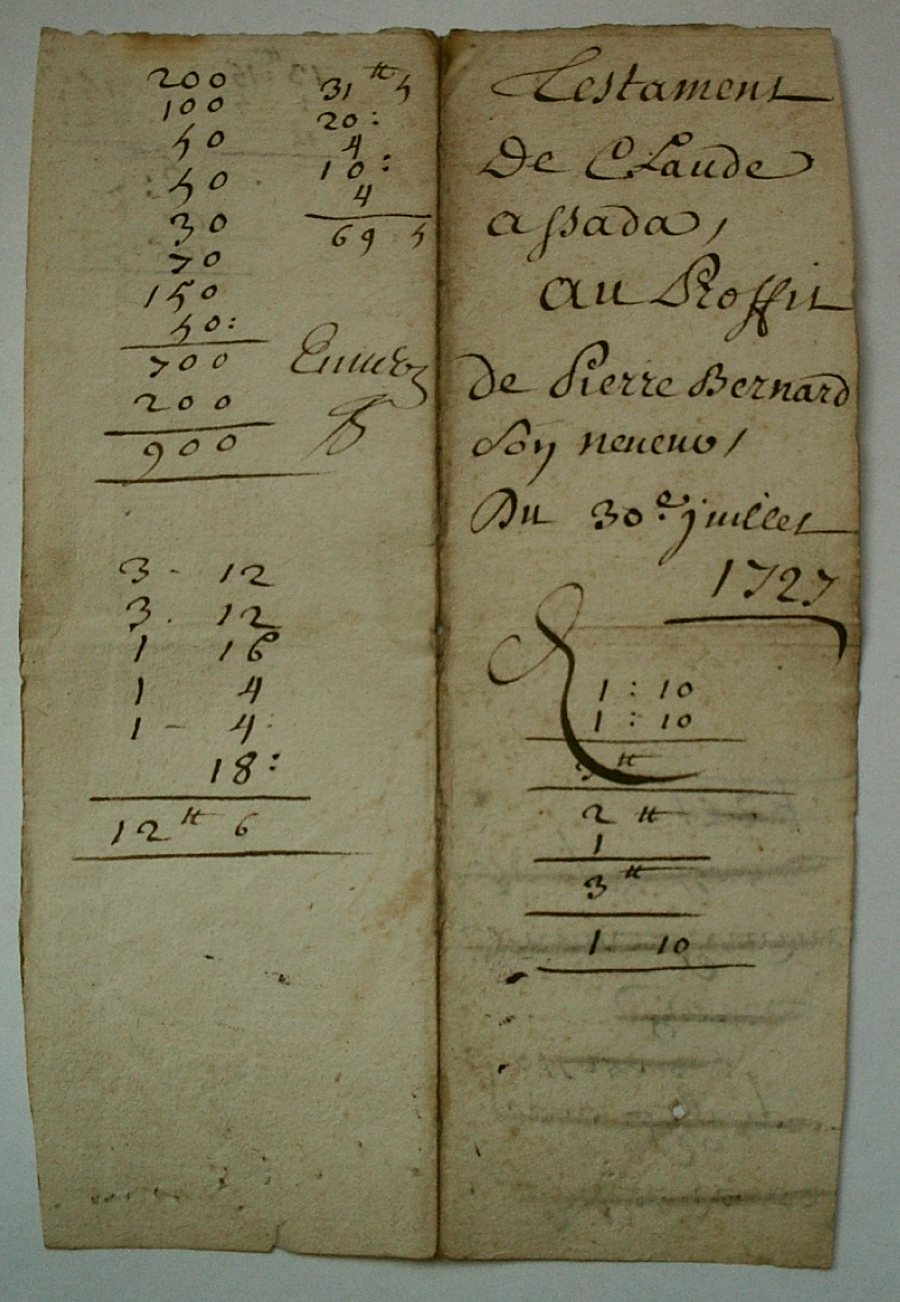 200
100
50
50
30
70
150
50:
700
200
900
31 ₶ 5
20:
4
10:
4
69 5
3 - 12
3. 12
1 16
1 4
1 - 4
18:
12 ₶ 6
Testament
De Claude
assada,
au Proffit
de Pierre Bernard
Son neveuv,
Du 30e juillet
1727
1 : 10
1 : 10
3 ₶
2 ₶
1
3 ₶
1 10